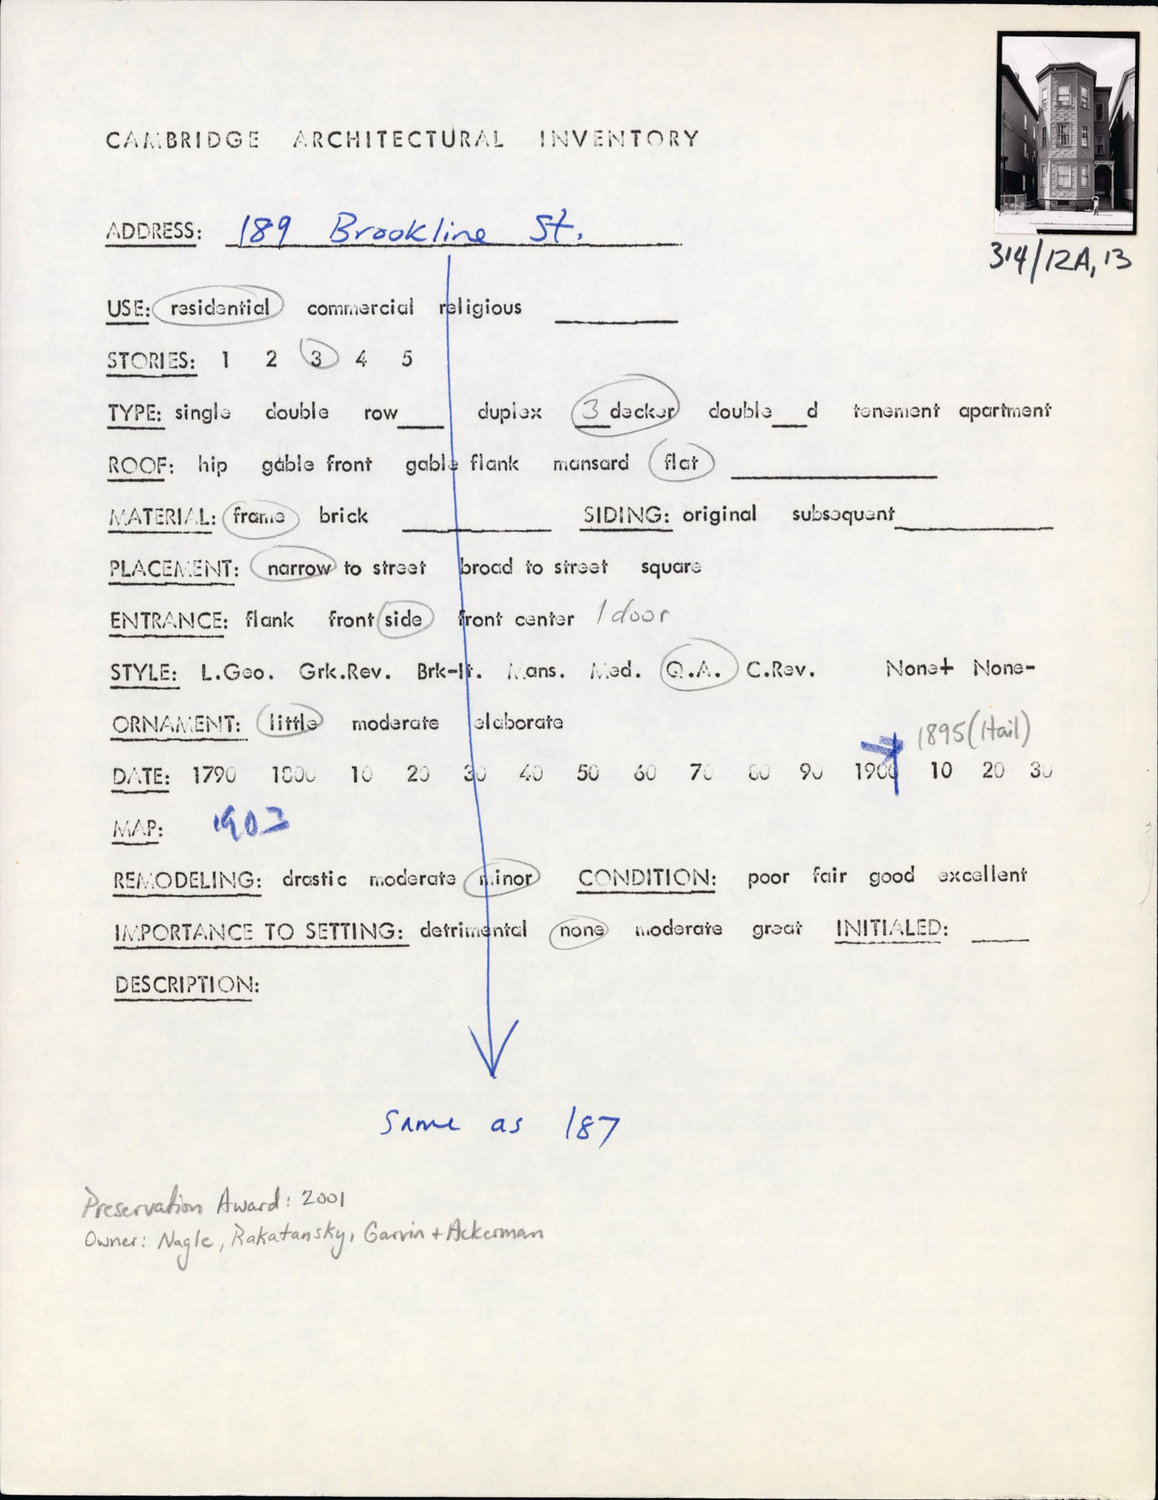 CAMBRIDGE ARCHITECTURAL INVENTORY
314/12A, 13
ADDRESS: 189 Brookline St.
USE: residential commercial religious ____
STORIES: 1 2 3 4 5
TYPE: single double row____ duplex 3 decker double__d tenement apartment
ROOF: hip gable front gable flank mansard flat ____
MATERIAL: frame brick ____ SIDING: original subsequent____
PLACEMENT: narrow to street broad to street square
ENTRANCE: flank front side front center 1 door
STYLE: L.Geo. Grk.Rev. Brk-It. Mans. Med. Q.A. C.Rev. None+ None-
ORNAMENT: little moderate elaborate
1895 (Hail)
DATE: 1790 1800 10 20 30 40 50 60 70 80 90 1900 10 20 30
MAP: 1903
REMODELING: drastic moderate minor CONDITION: poor fair good excellent
IMPORTANCE TO SETTING: detrimental none moderate great INITIALED: ____
DESCRIPTION:
Same as 187
Preservation Award: 2001
Owner: Nagle, Rakatansky, Garvin + Ackerman